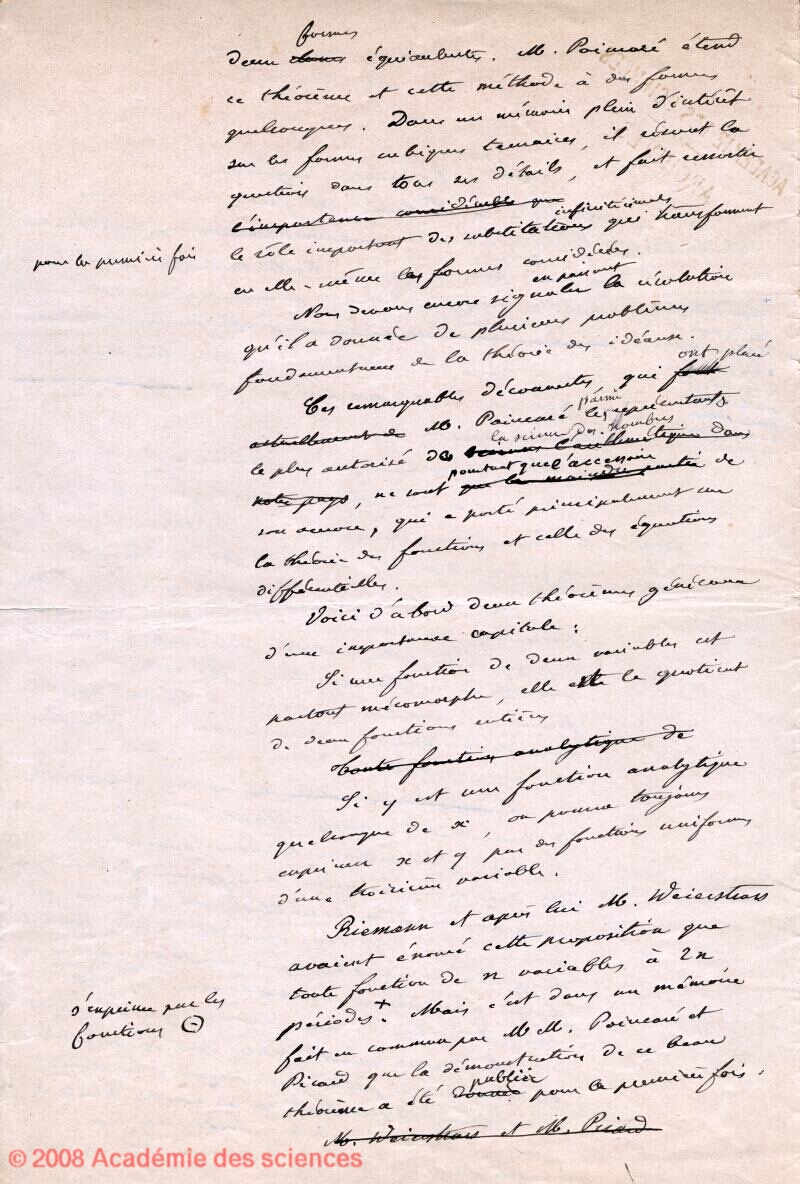 formes
deux équivalentes. M. Poincaré étend
ce théorème et cette méthode à des formes
quelconques. Dans un mémoire plein d'intérêt
sur les formes cubiques ternaires, il résout la
question dans tous ses détails, et fait ressortir
l'importance considérable que
infinitésimales
pour la première fois
le rôle important des substitutions qui transforment
en elle-même les formes considérées.
en passant
Nous devons encore signaler la résolution
qu'il a donnée de plusieurs problèmes
fondamentaux de la théorie des idéaux.
ont placé
Ces remarquables découvertes, qui font
parmi
actuellement de M. Poincaré les représentants
la science des nombres
le plus autorisé de l'arithmétique dans
pourtant que l'accessoire
notre pays, ne sont que la moindre partie de
son œuvre, qui a porté principalement sur
la théorie des fonctions et celle des équations
différentielles.
Voici d'abord deux théorèmes généraux
d'une importance capitale :
Si une fonction de deux variables est
partout méromorphe, elle est le quotient
de deux fonctions entières
Toute fonction analytique de
Si y est une fonction analytique
quelconque de x, on pourra toujours
exprimer x et y par des fonctions uniformes
d'une troisième variable.
Riemann et après lui M. Weierstrass
avaient énoncé cette proposition que
toute fonction de n variables à 2n
s'exprime par les
fonctions Θ
périodes+. Mais c'est dans un mémoire
fait en commun par MM. Poincaré et
Picard que la démonstration de ce beau
publiée
théorème a été donnée pour la première fois.
M. Weierstrass et M. Picard
© 2008 Académie des sciences